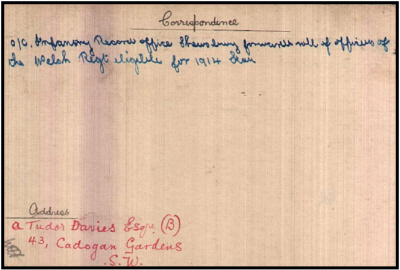 Correspondence
O/C. Infantry Record office Shrewsbury forwards roll of officers of
the Welsh Regt eligible for 1914 Star
Address
a Tudor Davies Esqr. (B)
43, Cadogan Gardens
S.W.